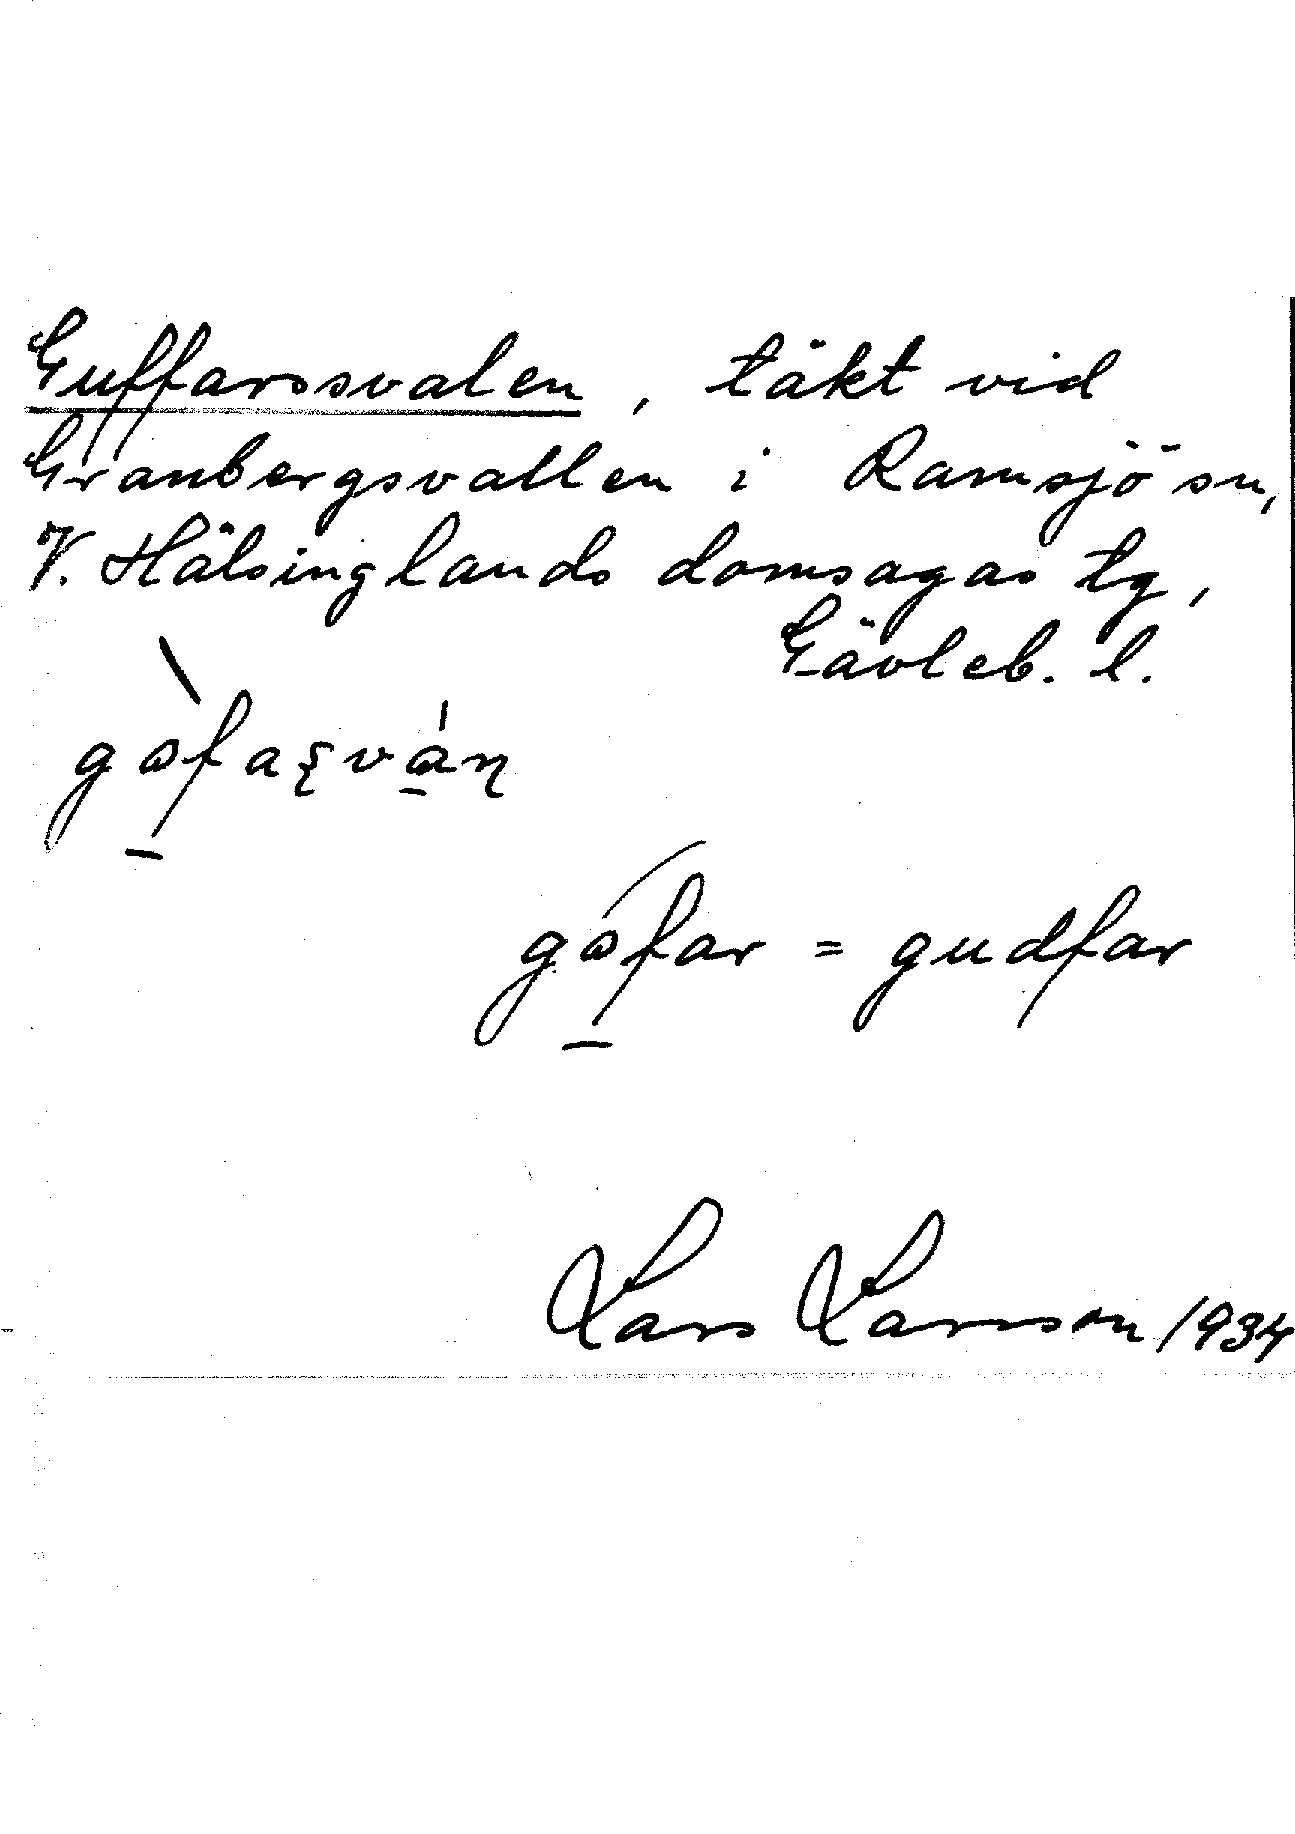 Guffarssvalen, täkt vid
Granbergsvallen i Ramsjö sn,
V. Hälsinglands domsagas tg,
Gävleb. l.
= gudfar
Lars Larsson 1934